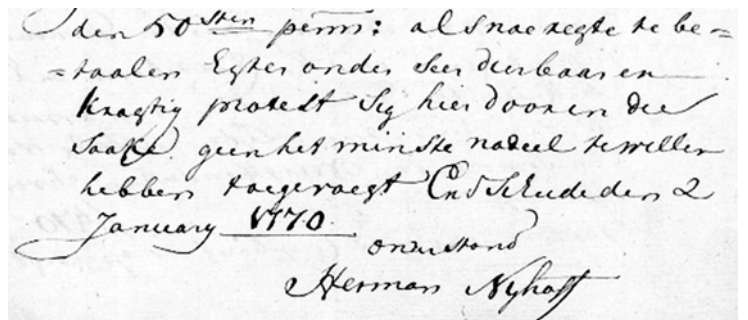 den 50sten penn: als na regte te be=
=taalen Egter onder seer durbaar en
kragtig protest sig hier door en die
saake geen het minste nadeel te willen
hebben toegevoegt Enschede den 2
January 1770.
onderstond
Herman Nyhoff